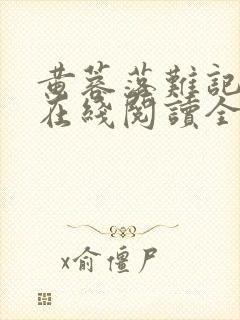 黄蓉落難記
在綫閱讀全
x俞僵尸